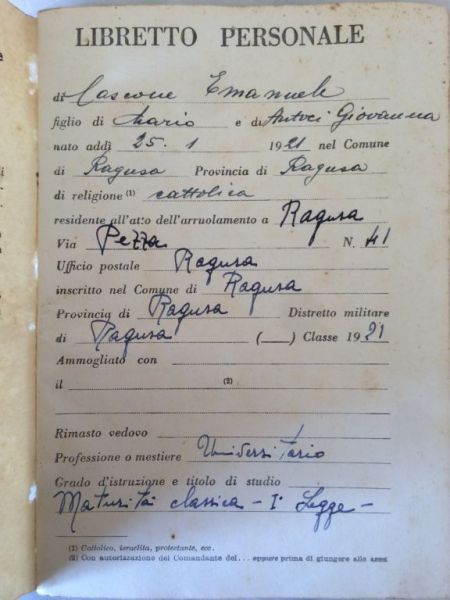 LIBRETTO PERSONALE
di Cascone Emanuele
figlio di Mario e di Antoci Giovanna
nato addì 25. 1 1921 nel Comune
di Ragusa Provincia di Ragusa
di religione (1) cattolica
residente all'atto dell'arruolamento a Ragusa
Via Pezza N. 41
Ufficio postale Ragusa
inscritto nel Comune di Ragusa
Provincia di Ragusa Distretto militare
di Ragusa (___) Classe 1921
Ammogliato con
il (2)
Rimasto vedovo
Professione o mestiere Universitario
Grado d'istruzione e titolo di studio
Maturità classica - I° Legge -
(1) Cattolico, israelita, protestante, ecc.
(2) Con autorizzazione del Comandante del... oppure prima di giungere alle armi